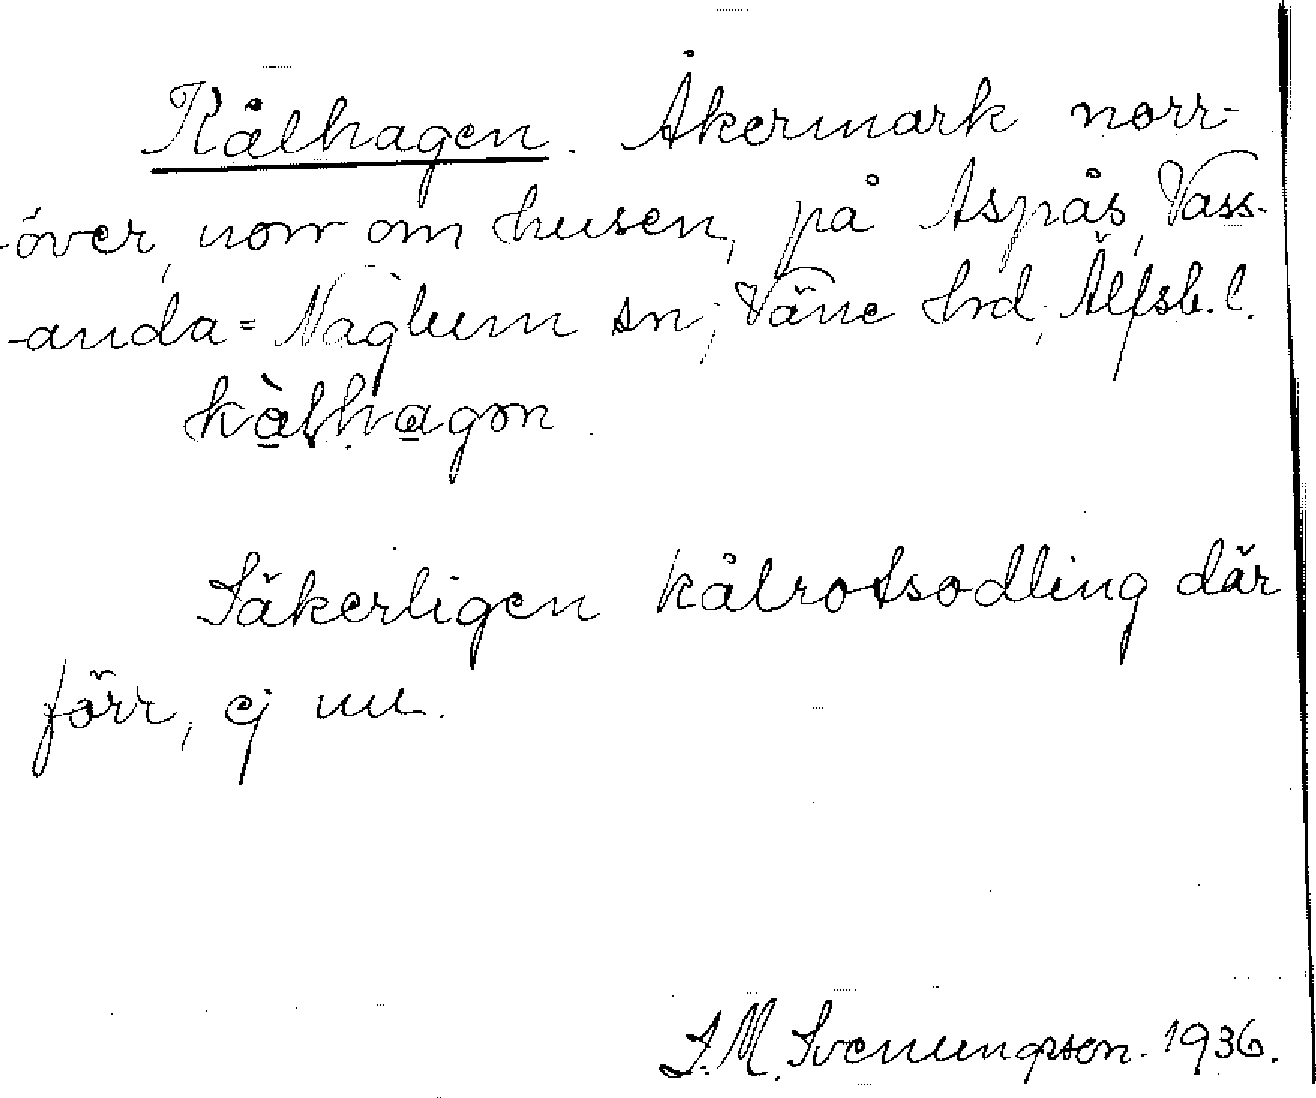 Kålhagen. Åkermark norr-
över, norr om husen, på Aspås, Vass-
anda-Naglum sn; Väne hrd, Älfsb. l.
Säkerligen kålrotsodling där
förr, ej nu.
S. M. Svenungsson. 1936.